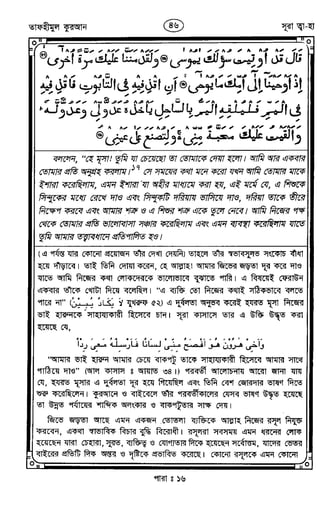 তাফহীমুল কুরআন
৪৬
সূরা ত্বা-হা
قَالَ قَدْ أُوتِيتَ سُؤْلَكَ يٰمُوسٰى ۝ وَلَقَدْ مَنَنَّا عَلَيْكَ مَرَّةً أُخْرٰى ۝
إِذْ أَوْحَيْنَا إِلٰى أُمِّكَ مَا يُوحٰى ۝ أَنِ اقْذِفِيهِ فِي التَّابُوتِ فَاقْذِفِيهِ
فِي الْيَمِّ فَلْيُلْقِهِ الْيَمُّ بِالسَّاحِلِ يَأْخُذْهُ عَدُوٌّ لِّي وَعَدُوٌّ لَّهُ ۚ
وَأَلْقَيْتُ عَلَيْكَ مَحَبَّةً مِّنِّي ۚ وَلِتُصْنَعَ عَلٰى عَيْنِي ۝
বললেন, “হে মূসা! তুমি যা চেয়েছো তা তোমাকে দেয়া হলো। আমি আর একবার
তোমার প্রতি অনুগ্রহ করলাম।১৭ সে সময়ের কথা মনে করো যখন আমি তোমার মাকে
ইশারা করেছিলাম, এমন ইশারা যা অহীর মাধ্যমে করা হয়, এই মর্মে যে, এ শিশুকে
সিন্দুকের মধ্যে রেখে দাও এবং সিন্দুকটি দরিয়ায় ভাসিয়ে দাও, দরিয়া তাকে তীরে
নিক্ষেপ করবে এবং আমার শত্রু ও এ শিশুর শত্রু একে তুলে নেবে। আমি নিজের পক্ষ
থেকে তোমার প্রতি ভালোবাসা সঞ্চার করেছিলাম এবং এমন ব্যবস্থা করেছিলাম যাতে
তুমি আমার তত্ত্বাবধানে প্রতিপালিত হও।
(এ পর্যন্ত যার কোনো প্রয়োজন তাঁর দেখা দেয়নি) তাহলে তাঁর স্বভাবসুলভ সংকোচ বাঁধা
হয়ে দাঁড়াবে। তাই তিনি দোয়া করেন, হে আল্লাহ! আমার জিভের জড়তা দূর করে দাও
যাতে আমি নিজের কথা লোকদেরকে ভালোভাবে বুঝাতে পারি। এ বিষয়েই ফেরাউন
একবার তাঁকে খোটা দিয়ে বলেছিল। “এ ব্যক্তি তো নিজের কথাই সঠিকভাবে বলতে
পারে না” (لَا يَكَادُ يُبِيْنُ যুখরুফ ৫২) এ দুর্বলতা অনুভব করেই হযরত মূসা নিজের
ভাই হারুনকে সাহায্যকারী হিসেবে চান। সূরা কাসাসে তার এ উক্তি উদ্ধৃত করা
হয়েছে যে,
وَأَخِي هٰرُونُ هُوَ أَفْصَحُ مِنِّي لِسَانًا فَأَرْسِلْهُ مَعِيَ رِدْءًا
“আমার ভাই হারুন আমার চেয়ে বাকপটু তাকে সাহায্যকারী হিসেবে আমার সাথে
পাঠিয়ে দাও” (আল কাসাস : আয়াত ৩৪।) পরবর্তী আলোচনায় আরো জানা যায়
যে, হযরত মূসার এ দুর্বলতা দূর হয়ে গিয়েছিল এবং তিনি বেশ জোরদার ভাষণ দিতে
শুরু করেছিলেন। কুরআনে ও বাইবেলে তাঁর পরবর্তীকালের যেসব ভাষণ উদ্ধৃত হয়েছে
তা উন্নত পর্যায়ের শাব্দিক অলংকার ও বাকপটুতার সাক্ষ দেয়।
জিভে জড়তা আছে এমন একজন তোতলা ব্যক্তিকে আল্লাহ নিজের রসূল নিযুক্ত
করবেন, একথা স্বাভাবিক বিচার বুদ্ধি বিরোধী। রসূলরা সবসময় এমন ধরনের লোক
হয়েছেন যারা চেহারা, সুরত, ব্যক্তিত্ব ও যোগ্যতার দিক থেকে হয়েছেন সর্বোত্তম, যাদের ভেতর
বাইরের প্রতিটি দিক অন্তর ও দৃষ্টিকে প্রভাবিত করেছে। কোনো রসূলকে এমন কোনো
পারা : ১৬